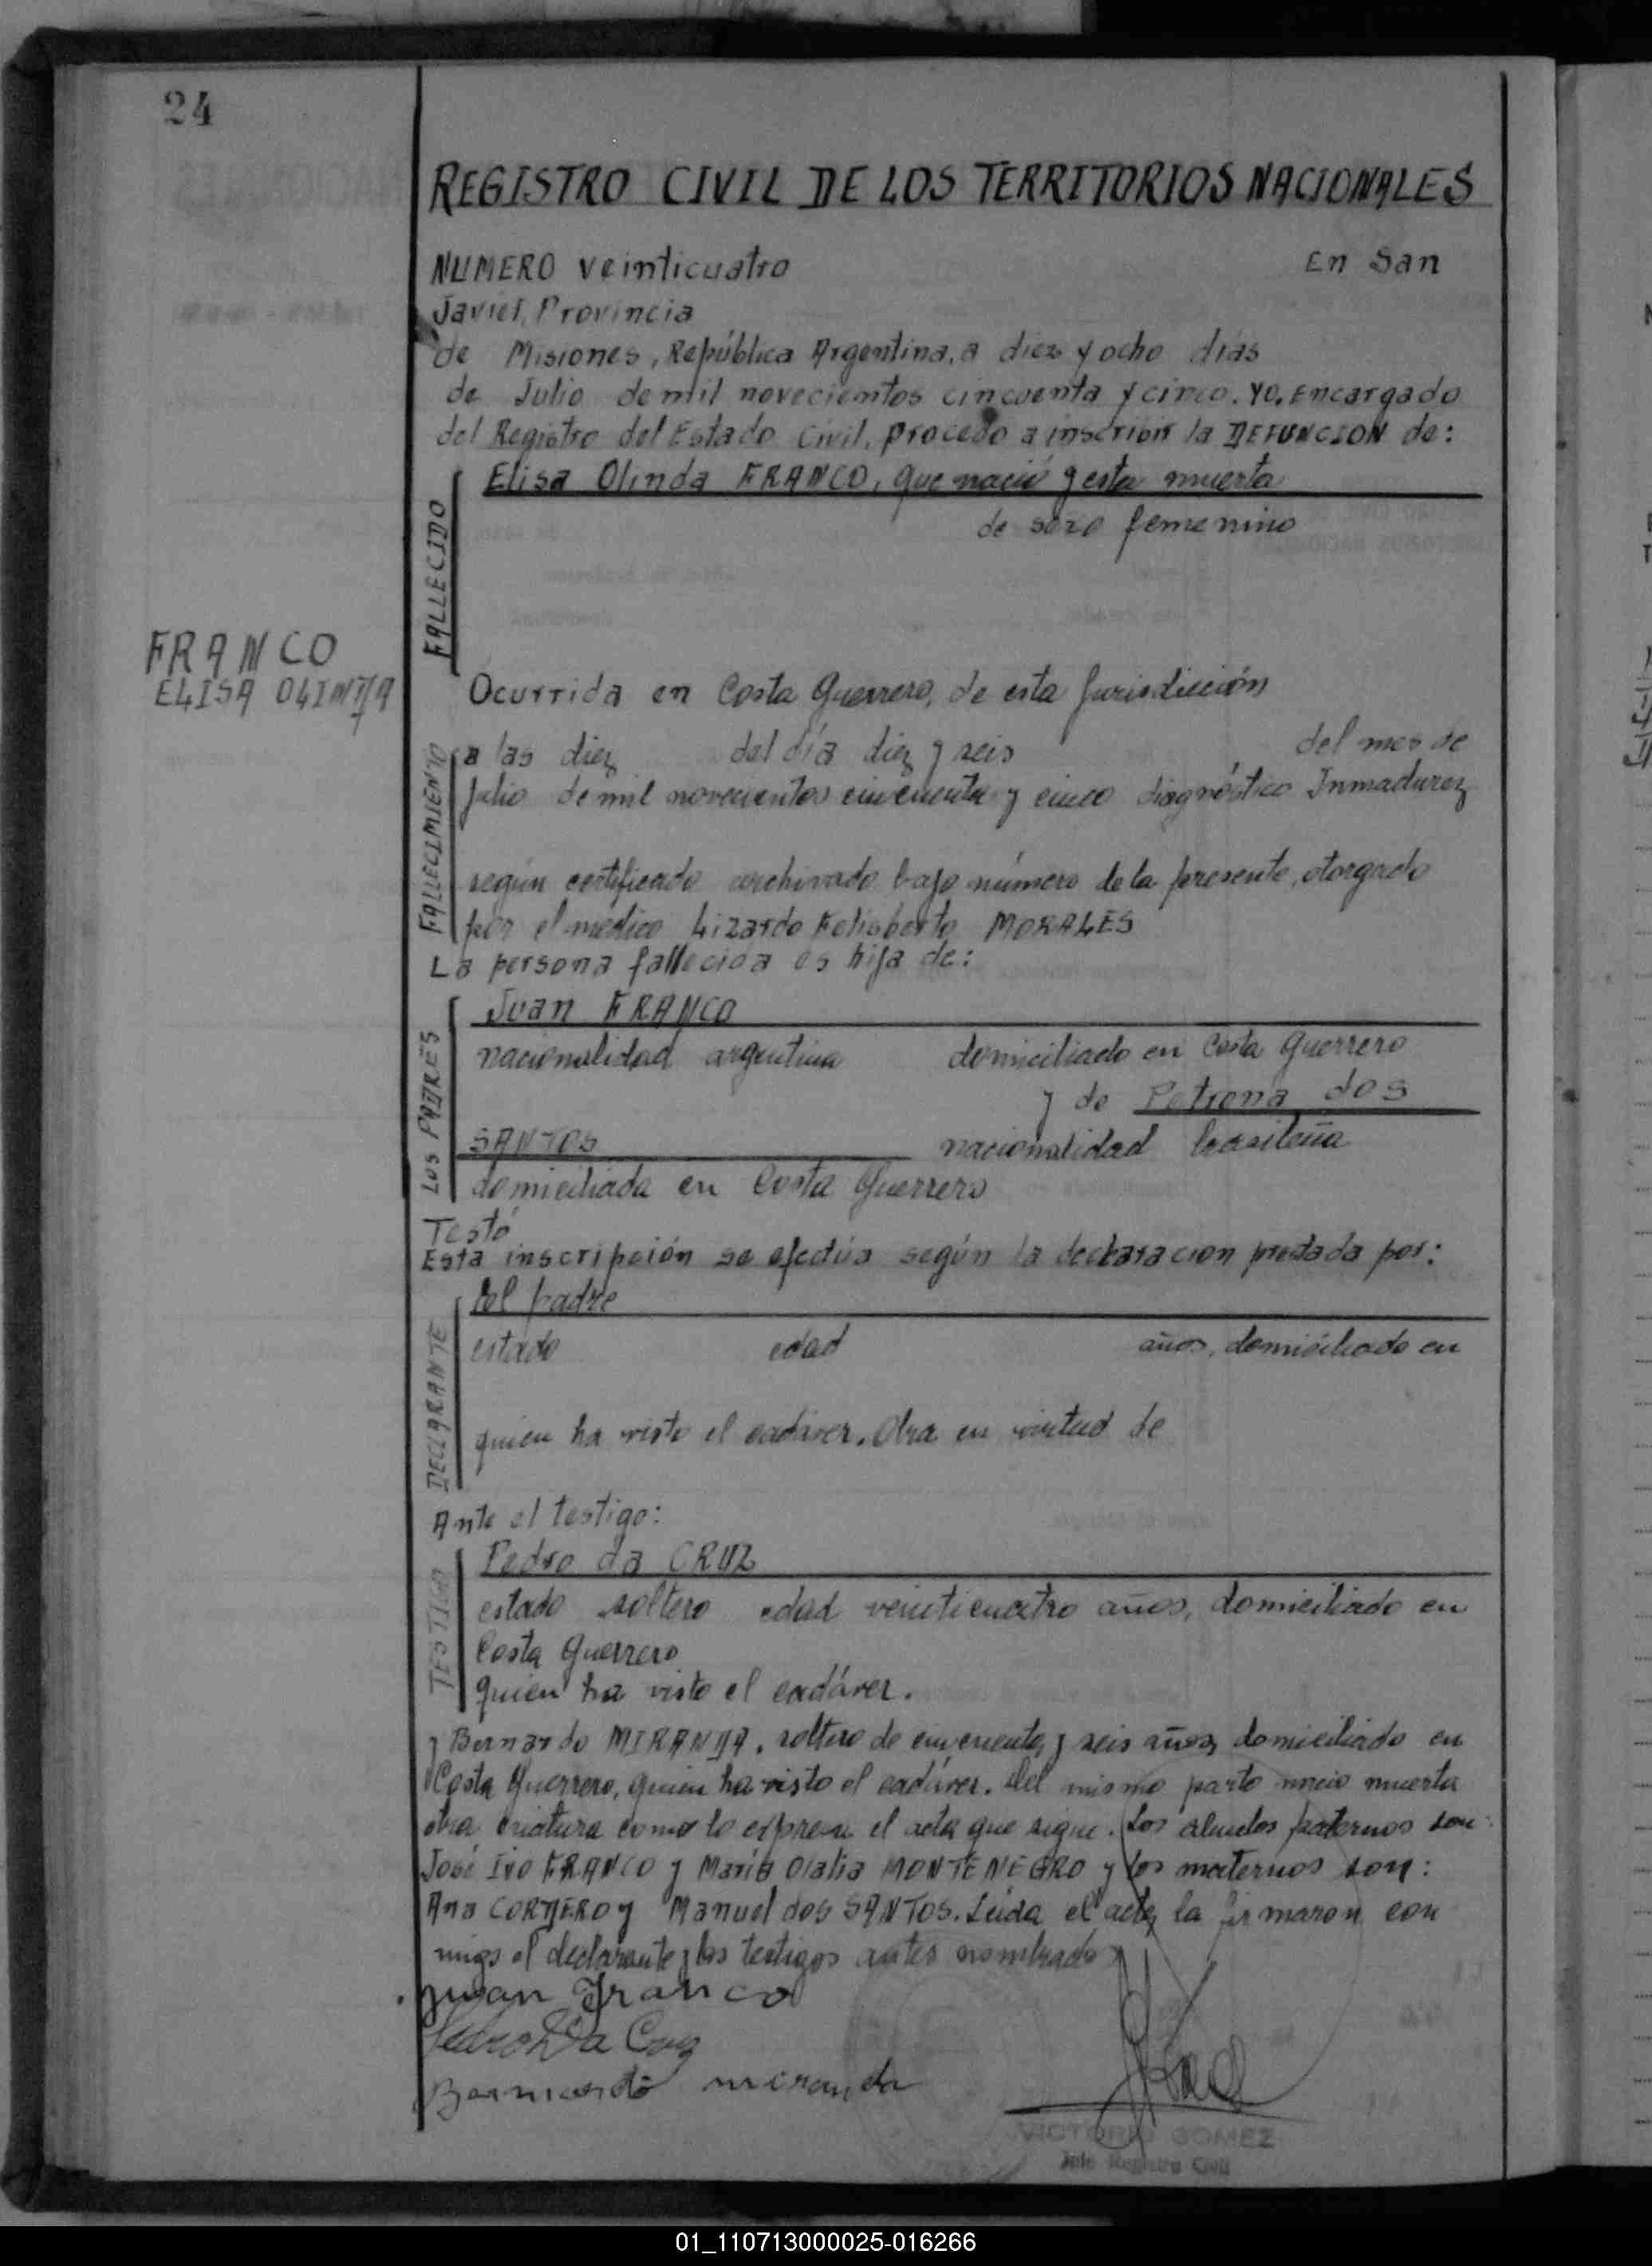 24
REGISTRO CIVIL DE LOS TERRITORIOS NACIONALES
NUMERO veinticuatro En San
Javier, Provincia
de Misiones, República Argentina, a diez y ocho días
de Julio de mil novecientos cincuenta y cinco. Yo, Encargado
del Registro del Estado Civil, procedo a inscribir la DEFUNCION de:
FALLECIDO
Elisa Olinda FRANCO, que nació y esta muerta
de sexo femenino
FRANCO
ELISA OLINDA
Ocurrida en Costa Guerrero, de esta Jurisdicción
FALLECIMIENTO
a las diez del día diez y seis del mes de
Julio de mil novecientos cincuenta y cinco diagnóstico Inmadurez
según certificado archivado bajo número de la presente, otorgado
por el medico Lizardo Felisberto MORALES
La persona fallecida es hija de:
LOS PADRES
Juan FRANCO
nacionalidad argentina domiciliado en Costa Guerrero
y de Petrona dos
SANTOS nacionalidad brasileña
domiciliada en Costa Guerrero
Testó
Esta inscripción se efectúa según la declaracion prestada por:
DECLARANTE
El padre
estado edad años, domiciliado en
quien ha visto el cadáver. Obra en virtud de
Ante el testigo:
TESTIGO
Pedro da CRUZ
estado soltero edad veinticuatro años, domiciliado en
Costa Guerrero
quien ha visto el cadáver.
y Bernardo MIRANDA, soltero de cincuenta y seis años, domiciliado en
Costa Guerrero, quien ha visto el cadáver. Del mismo parto nació muerta
otra criatura como lo expresa el acta que sigue. Los abuelos paternos son:
José Ivo FRANCO y María Olalia MONTENEGRO y los maternos son:
Ana CORDERO y Manuel dos SANTOS. Leída el acta, la firmaron con
migo el declarante y los testigos antes nombrados
Juan Franco
Pedro Da Cruz
Bernardo miranda
VICTORIO GOMEZ
Jefe Registro Civil
01_110713000025-016266